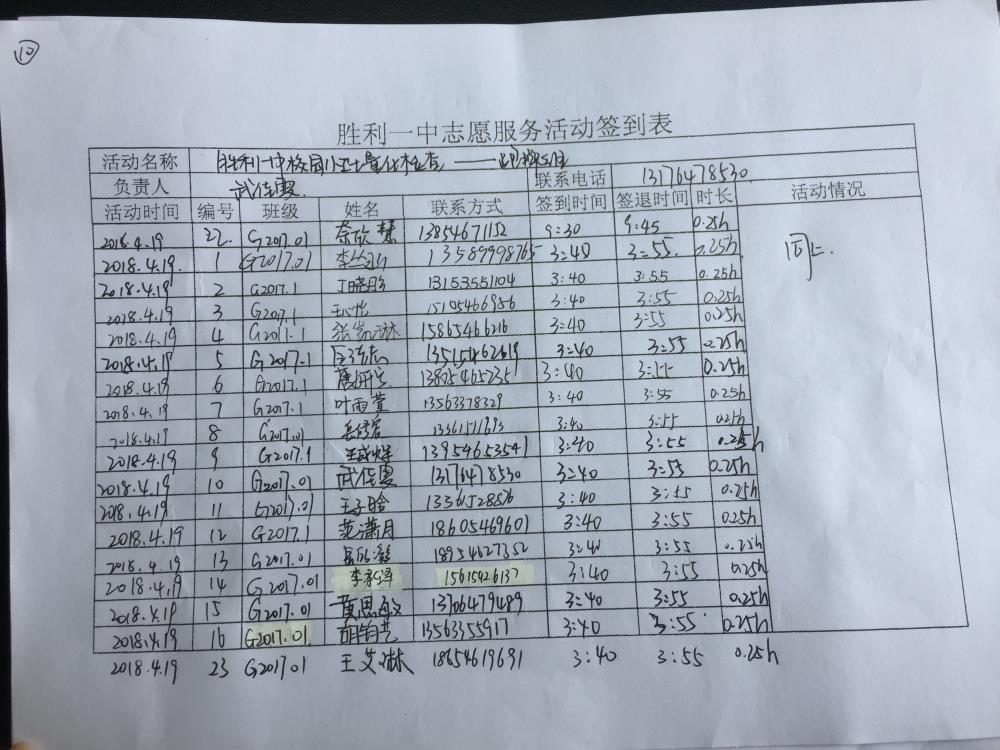 10
胜利一中志愿服务活动签到表
活动名称 胜利一中校园卫士量化检查——
负责人 武佳霎 联系电话 13176478530
活动时间 编号 班级 姓名 联系方式 签到时间 签退时间 时长 活动情况
2018.4.19 22. G2017.01 13854671152 9:30 9:45 0.25h 同上
2018.4.19. 1 G2017.01 13589998765 3:40 3:55 0.25h
2018.4.19 2 G2017.1 13153551104 3:40 3:55 0.25h
2018.4.19 3 G2017.1 15105466986 3:40 3:55 0.25h
2018.4.19 4 G2017.1 15865466216 3:40 3:55 0.25h
2018.4.19 5 G2017.1 13515462619 3:40 3:55 0.25h
2018.4.19 6 G2017.1 3:40 3:55 0.25h
2018.4.19 7 G2017.1 叶雨萱 13563378329 3:40 3:55 0.25h
2018.4.19 8 G2017.01 3:40 3:55 0.25h
2018.4.19 9 G2017.1 13954653541 3:40 3:55 0.25h
2018.4.19 10 G2017.01 13176478530 3:40 3:55 0.25h
2018.4.19 11 G2017.01 王子晗 3:40 3:55 0.25h
2018.4.19 12 G2017.1 范潇月 18605469601 3:40 3:55 0.25h
2018.4.19 13 G2017.01 18954627352 3:40 3:55 0.25h
2018.4.19 14 G2017.01 李承泽 15615426137 3:40 3:55 0.25h
2018.4.19 15 G2017.01 黄思敏 13706479489 3:40 3:55 0.25h
2018.4.19 16 G2017.01. 胡钧艺 13563355917 3:40 3:55 0.25h
2018.4.19 23 G201701 王艾琳 18654619691 3:40 3:55 0.25h